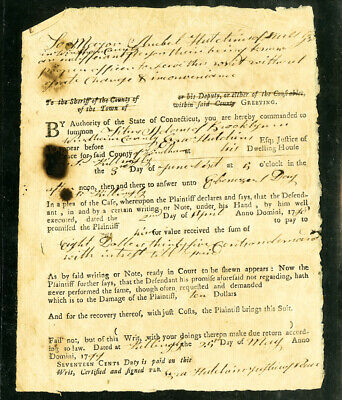 To
an indifferent Person there being no
proper officer to serve this writ without
great Charge & inconvenience
To the Sheriff of the County of
of the Town of
or his Deputy, or either of the Constables
within said County GREETING.
BY Authority of the State of Connecticut, you are hereby commanded to
summon of Brooklyn in
Windham County
pear before Esq; Justice of
Peace for said County of Windham his Dwelling House
in Killingly
the 3d Day of June next at o'clock in the
noon, then and there to answer unto Ebenezer Day
of Killingly
In a plea of the Case, whereupon the Plaintiff declares and says, that the Defend-
ant, in and by a certain writing or Note, under his Hand, by him well
executed, dated the 2nd Day of April Anno Domini, 179
promised the Plaintiff to pay to
him for value received the sum of
eight Dollars thirty five Cents on demand
with interest till paid
As by said writing or Note, ready in Court to be shewn appears: Now the
Plaintiff further says, that the Defendant his promise aforesaid not regarding, hath
never performed the same, though often requested and demanded
which is to the Damage of the Plaintiff, ten Dollars
And for the recovery thereof, with just Costs, the Plaintiff brings this Suit.
Fail not, but of this Writ, with your doings thereon make due return accord-
ing to law. Dated at Killingly the 25 Day of May Anno
Domini, 179
SEVENTEEN CENTS Duty is paid on this
Writ, Certified and signed PER.